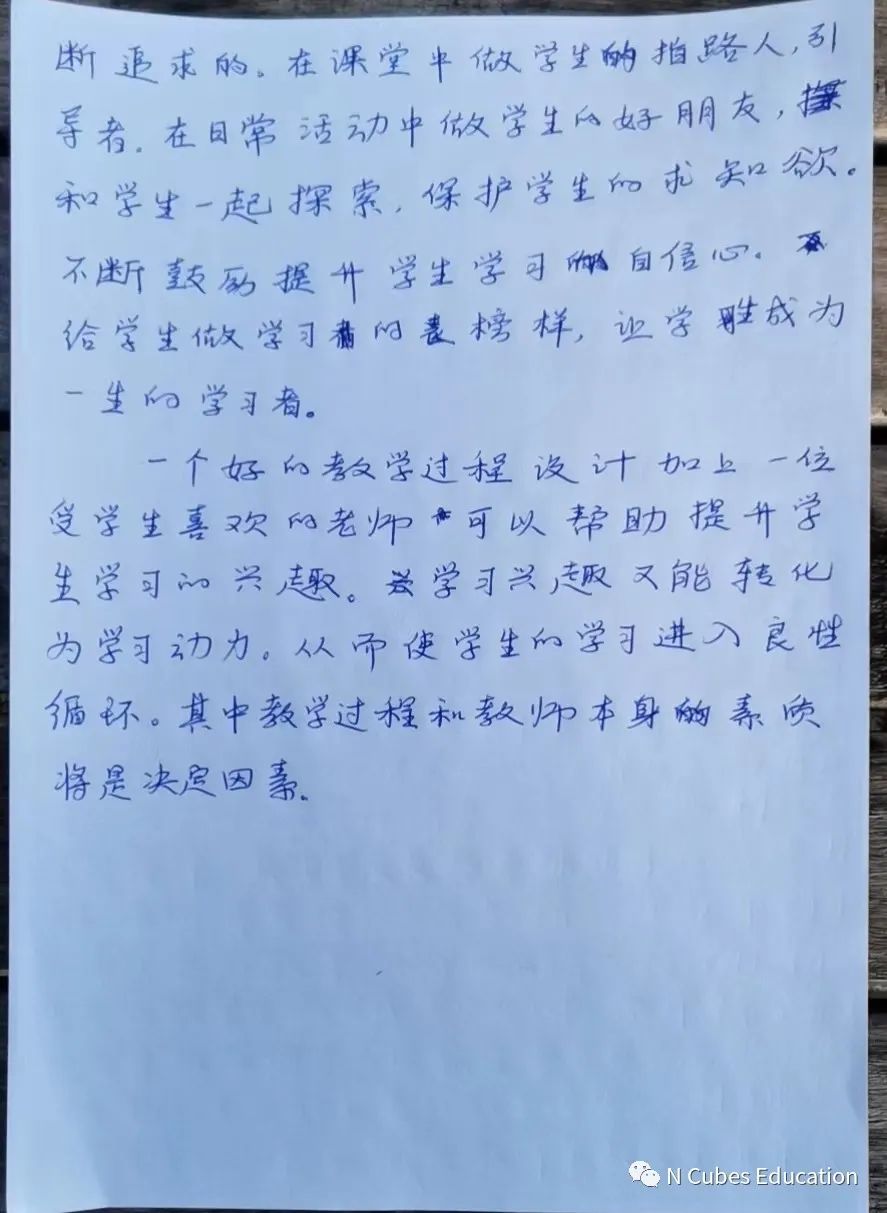 断追求的。在课堂中做学生的指路人,引
导者。在日常活动中做学生的好朋友,
和学生一起探索,保护学生的求知欲。
不断鼓励提升学生学习的自信心。
给学生做学习的榜样,让学生成为
一生的学习者。
一个好的教学过程设计加上一位
受学生喜欢的老师可以帮助提升学
生学习的兴趣。学习兴趣又能转化
为学习动力。从而使学生的学习进入良性
循环。其中教学过程和教师本身的素质
将是决定因素.
N Cubes Education